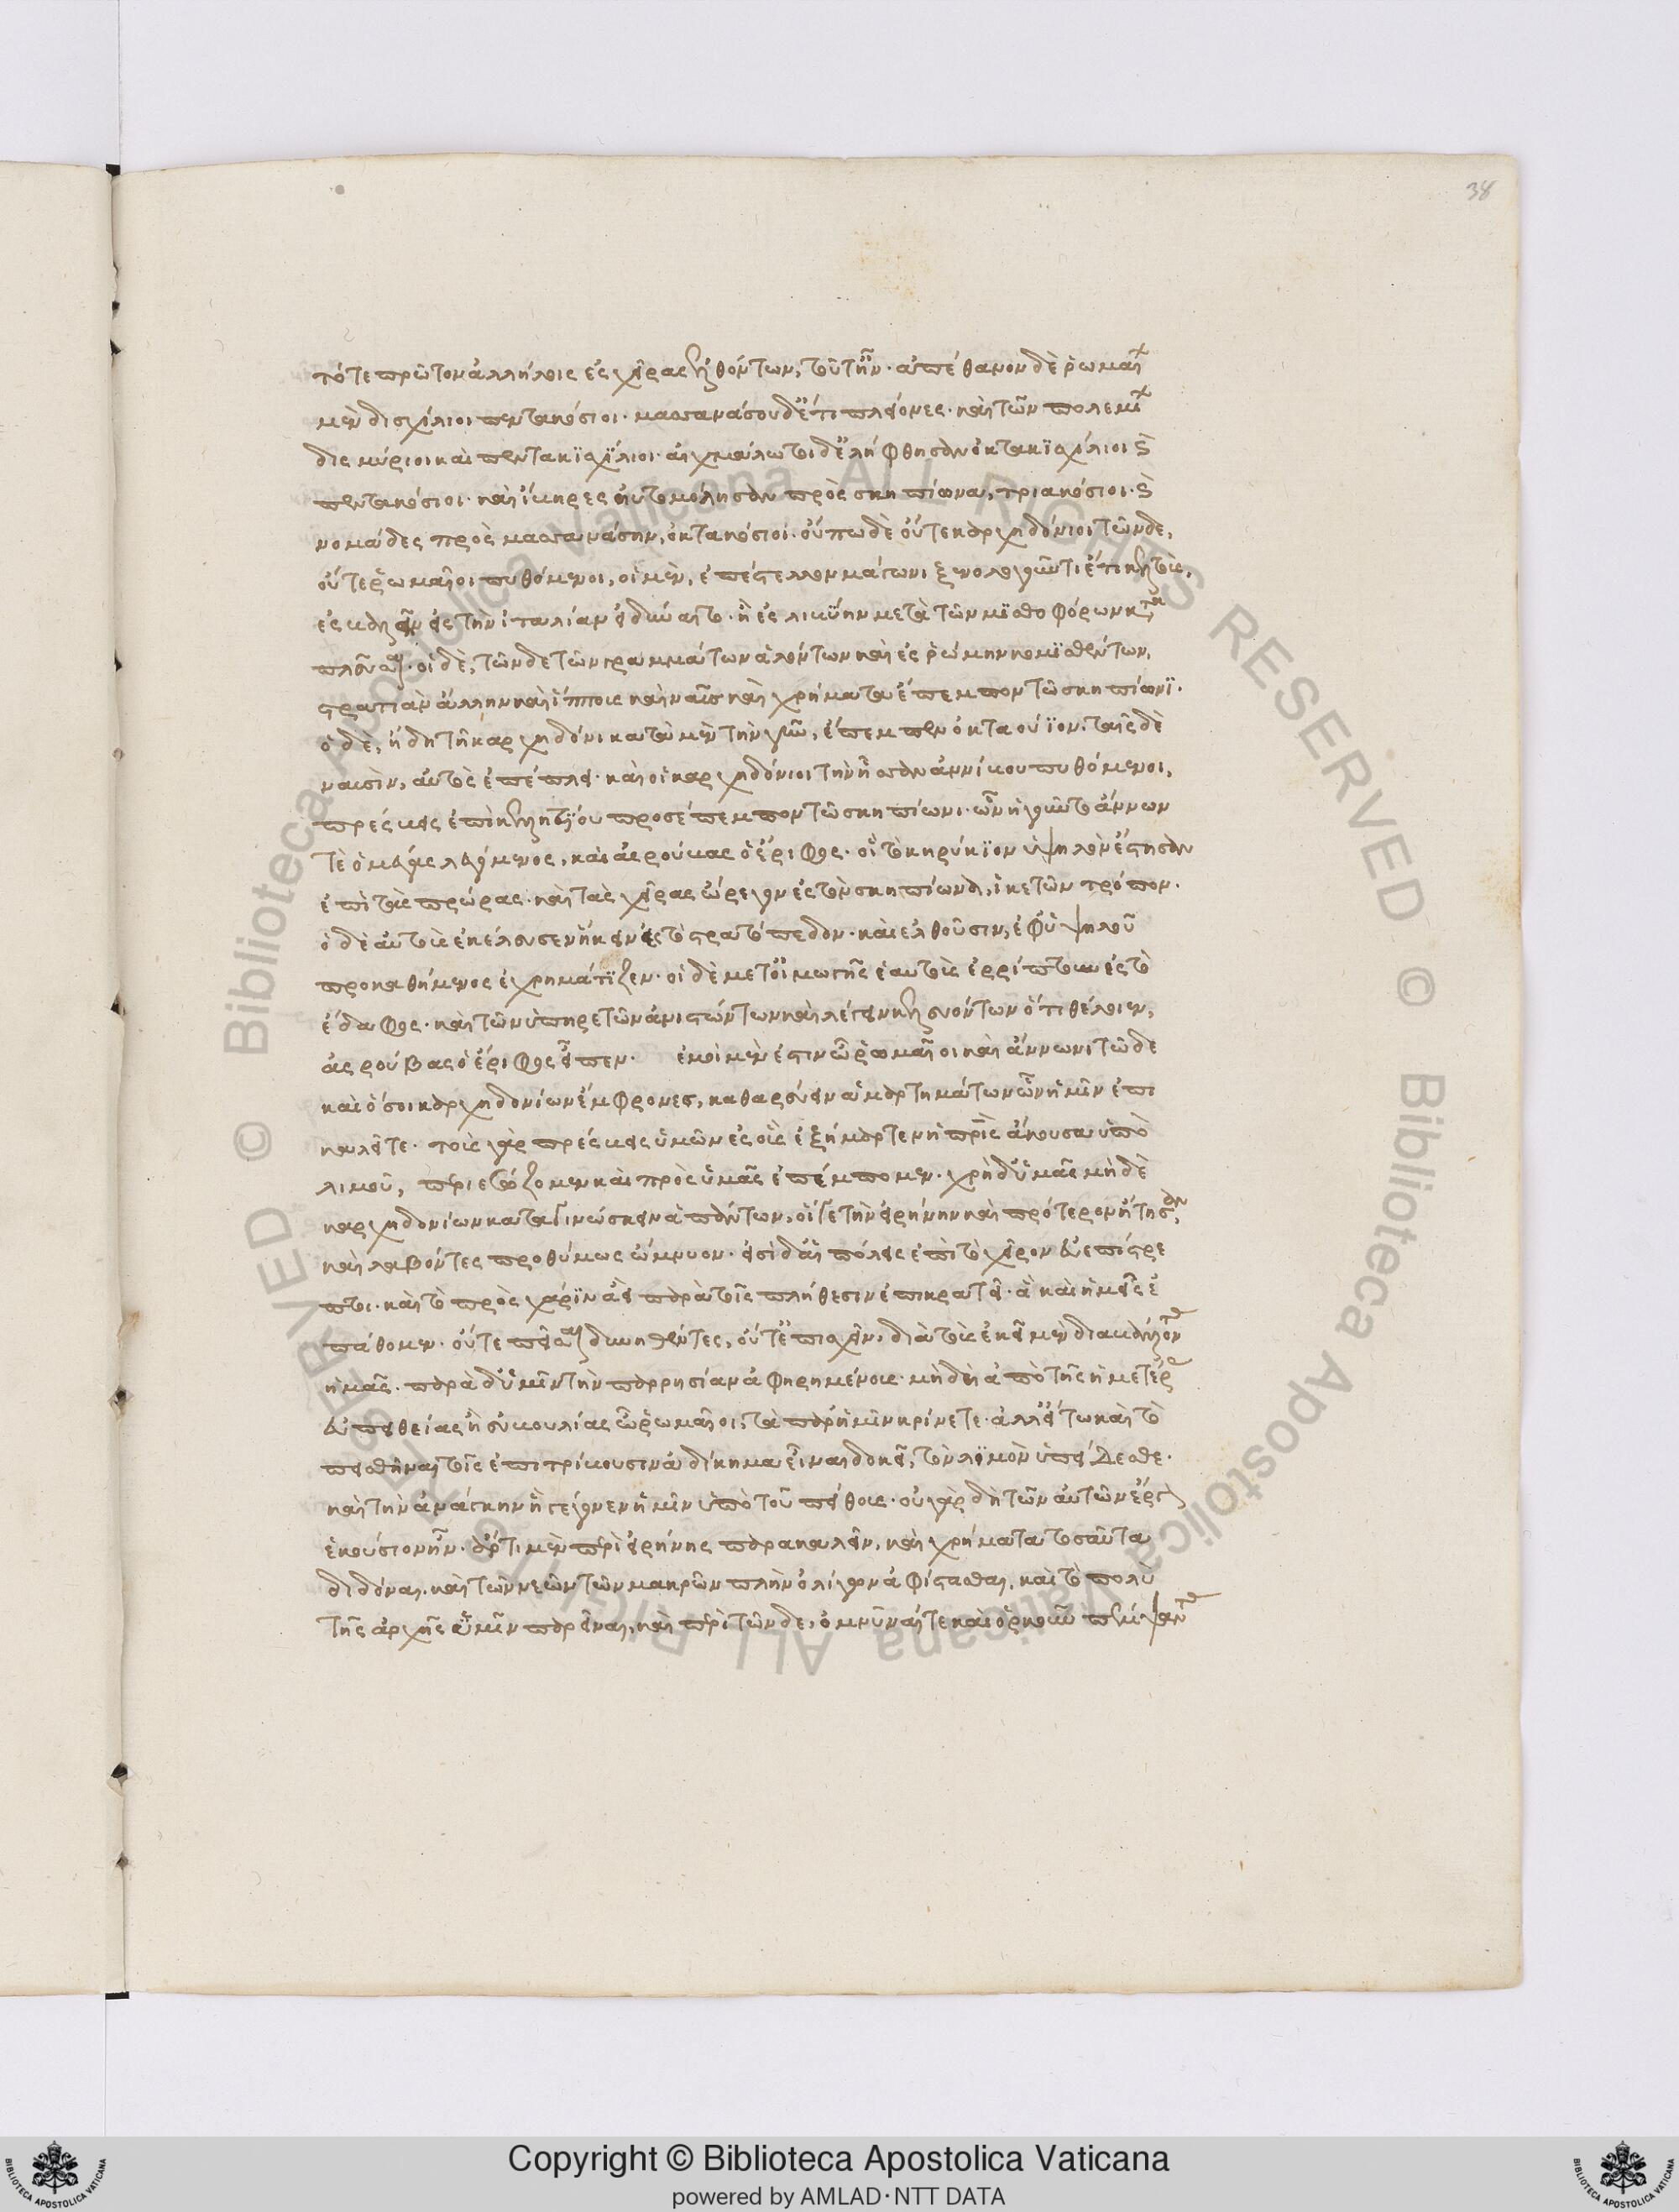 38
τότε πρῶτον ἀλλήλοις ἐς χεῖρας ἐλθόντων, τοῦτ' ἦν· ἀπέθανον δὲ ῥωμαί
μὲν δισχίλιοι πεντακόσιοι· μασσανάσου δ' ἔτι πλείονες· καὶ τῶν πολεμί
δισμύριοι καὶ πεντακισχίλιοι· αἰχμάλωτοι δ' ἐλήφθησαν ὀκτακισχίλιοι καὶ
πεντακόσιοι· καὶ ἴβηρες ηὐτομόλησαν πρὸς σκηπίωνα, τριακόσιοι· καὶ
νομάδες πρὸς μασσανάσην, ὀκτακόσιοι· οὔπω δὲ οὔτε καρχηδόνιοι τῶνδε,
οὔτε ῥωμαῖοι πυθόμενοι, οἱ μὲν, ἐπέστελλον μάγωνι ξενολογοῦντι ἔτι κελτοὺς,
ἐσβαλεῖν ἐς τὴν ἰταλίαν εἰ δύναιτο· ἢ ἐς λιβύην μετὰ τῶν μισθοφόρων κατα
πλεῦσαι· οἱ δὲ, τῶνδε τῶν γραμμάτων ἁλόντων καὶ ἐς ῥώμην κομισθέντων,
στρατιὰν ἄλλην καὶ ἵππους καὶ ναῦς καὶ χρήματα ἔπεμπον τῶ σκηπίωνι·
ὁ δὲ, ἤδη τῆ καρχηδόνι κατὰ μὲν τὴν γῆν, ἔπεμπεν ὀκταούϊον· ταῖς δὲ
ναυσὶν, αὐτὸς ἐπέπλει· καὶ οἱ καρχηδόνιοι τὴν ἧσσαν ἀννίβου πυθόμενοι,
πρέσβεις ἐπὶ κελητίου προσέπεμπον τῶ σκηπίωνι· ὧν ἡγοῦντο ἄννων
τὲ ὁ μέγας λεγόμενος, καὶ ἀσρούβας ὁ ἔριφος· οἳ τὸ κηρύκιον ὑψηλὸν ἔστησαν
ἐπὶ τῆς πρώρας· καὶ τὰς χεῖρας ὤρεγον ἐς τὸν σκηπίωνα, ἱκετῶν τρόπον·
ὁ δὲ αὐτοὺς ἐκέλευσεν ἥκειν ἐς τὸ στρατόπεδον· καὶ ἐλθοῦσιν, ἐφ' ὑψηλοῦ
προκαθήμενος ἐχρημάτιζεν· οἱ δὲ μετ' οἰμωγῆς ἑαυτοὺς ἐρρίπτουν ἐς τὸ
ἔδαφος· καὶ τῶν ὑπηρετῶν ἀνιστώντων καὶ λέγειν κελευόντων ὅ τι θέλοιεν,
ἀσρούβας ὁ ἔριφος εἶπεν· ἐμοὶ μὲν ἐστιν ὦ ῥωμαῖοι καὶ ἄννωνι τῶδε
καὶ ὅσοι καρχηδονίων ἔμφρονες, καθαρεύειν ἁμαρτημάτων ὧν ἡμῖν ἐπι
καλεῖτε· τοὺς γὰρ πρέσβεις ὑμῶν ἐς οὓς ἐξήμαρτεν ἡ πατρὶς ἄκουσα ὑπὸ
λιμοῦ, περιεσώζομεν καὶ πρὸς ὑμᾶς ἐπέμπομεν· χρὴ δ' ὑμᾶς μὴ δὲ
καρχηδονίων καταγινώσκειν ἁπάντων, οἵ γε τὴν εἰρήνην καὶ πρότερον ἤτησαν,
καὶ λαβόντες προθύμως ὤμνυον· εἰσὶ δ' αἱ πόλεις ἐπὶ τὸ χεῖρον εὐεπίστρε
πτοι· καὶ τὸ πρὸς χάριν ἀεὶ παρὰ τοῖς πλήθεσιν ἐπικρατεῖ· ἃ καὶ ἡμεῖς ἐ
πάθομεν· οὔτε πεῖσαι δυνηθέντες, οὔτ' ἐπισχεῖν, διὰ τοὺς ἐκεῖ μὲν διαβάλλοντας
ἡμᾶς· παρὰ δ' ὑμῖν τὴν παρρησίαν ἀφῃρημένους· μὴ δὴ ἀπὸ τῆς ἡμετέρας
εὐπειθείας ἢ εὐβουλίας ὦ ῥωμαῖοι, τὰ παρ' ἡμῖν κρίνετε· ἀλλ' εἴ τω καὶ τὸ
πεισθῆναι τοῖς ἐπιτρίβουσιν ἀδίκημα εἶναι δοκεῖ, τὸν λιμὸν ὑπείδεσθε·
καὶ τὴν ἀνάγκην ἣ γέγονεν ἡμῖν ὑπὸ τοῦ πάθους· οὐ γὰρ δὴ τῶν αὐτῶν ἔργον
ἑκούσιον ἦν· ἄρτι μὲν περὶ εἰρήνης παρακαλεῖν, καὶ χρήματα τοσαῦτα
διδόναι· καὶ τῶν νεῶν τῶν μακρῶν πλὴν ὀλίγων ἀφίστασθαι, καὶ τὸ πολὺ
τῆς ἀρχῆς ὑμῖν παρεῖναι, καὶ περὶ τῶνδε, ὀμνῦναι τε καὶ ὁρκοῦν πέμψαντας
Copyright © Biblioteca Apostolica Vaticana
powered by AMLAD·NTT DATA